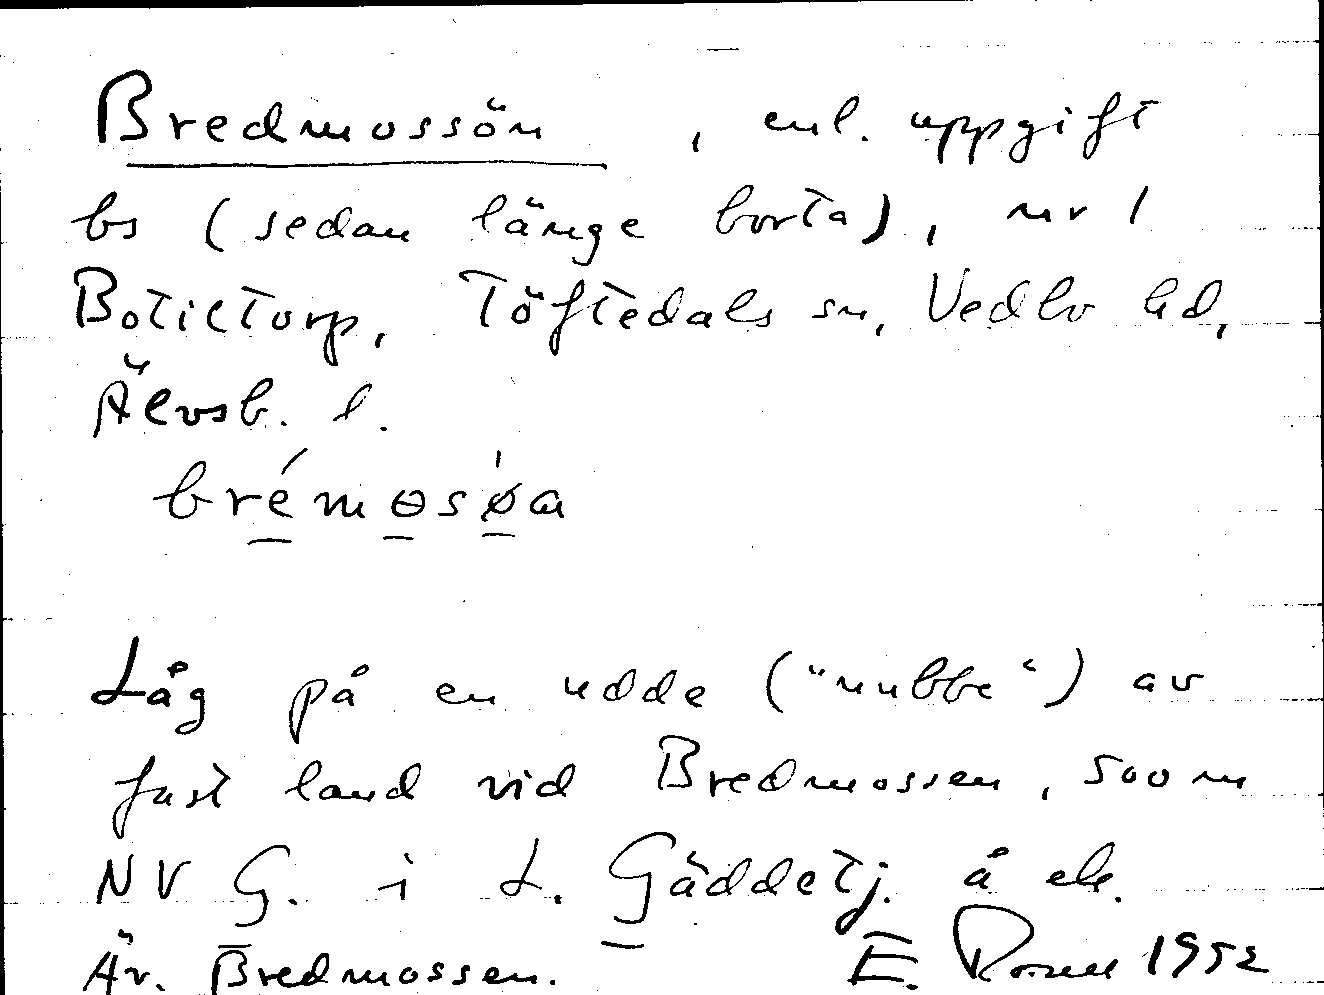 Bredmossön, enl. uppgift
bs (sedan länge borta), nr 1
Botiltorp, Töftedals sn, Vedbo hd,
Älvsb. l.
brémɵsøa
Låg på en udde ("nubbe") av
fast land vid Bredmossen, 500 m
NV G. i L. Gäddetj. å ek.
Äv. Bredmossen. E. 1952